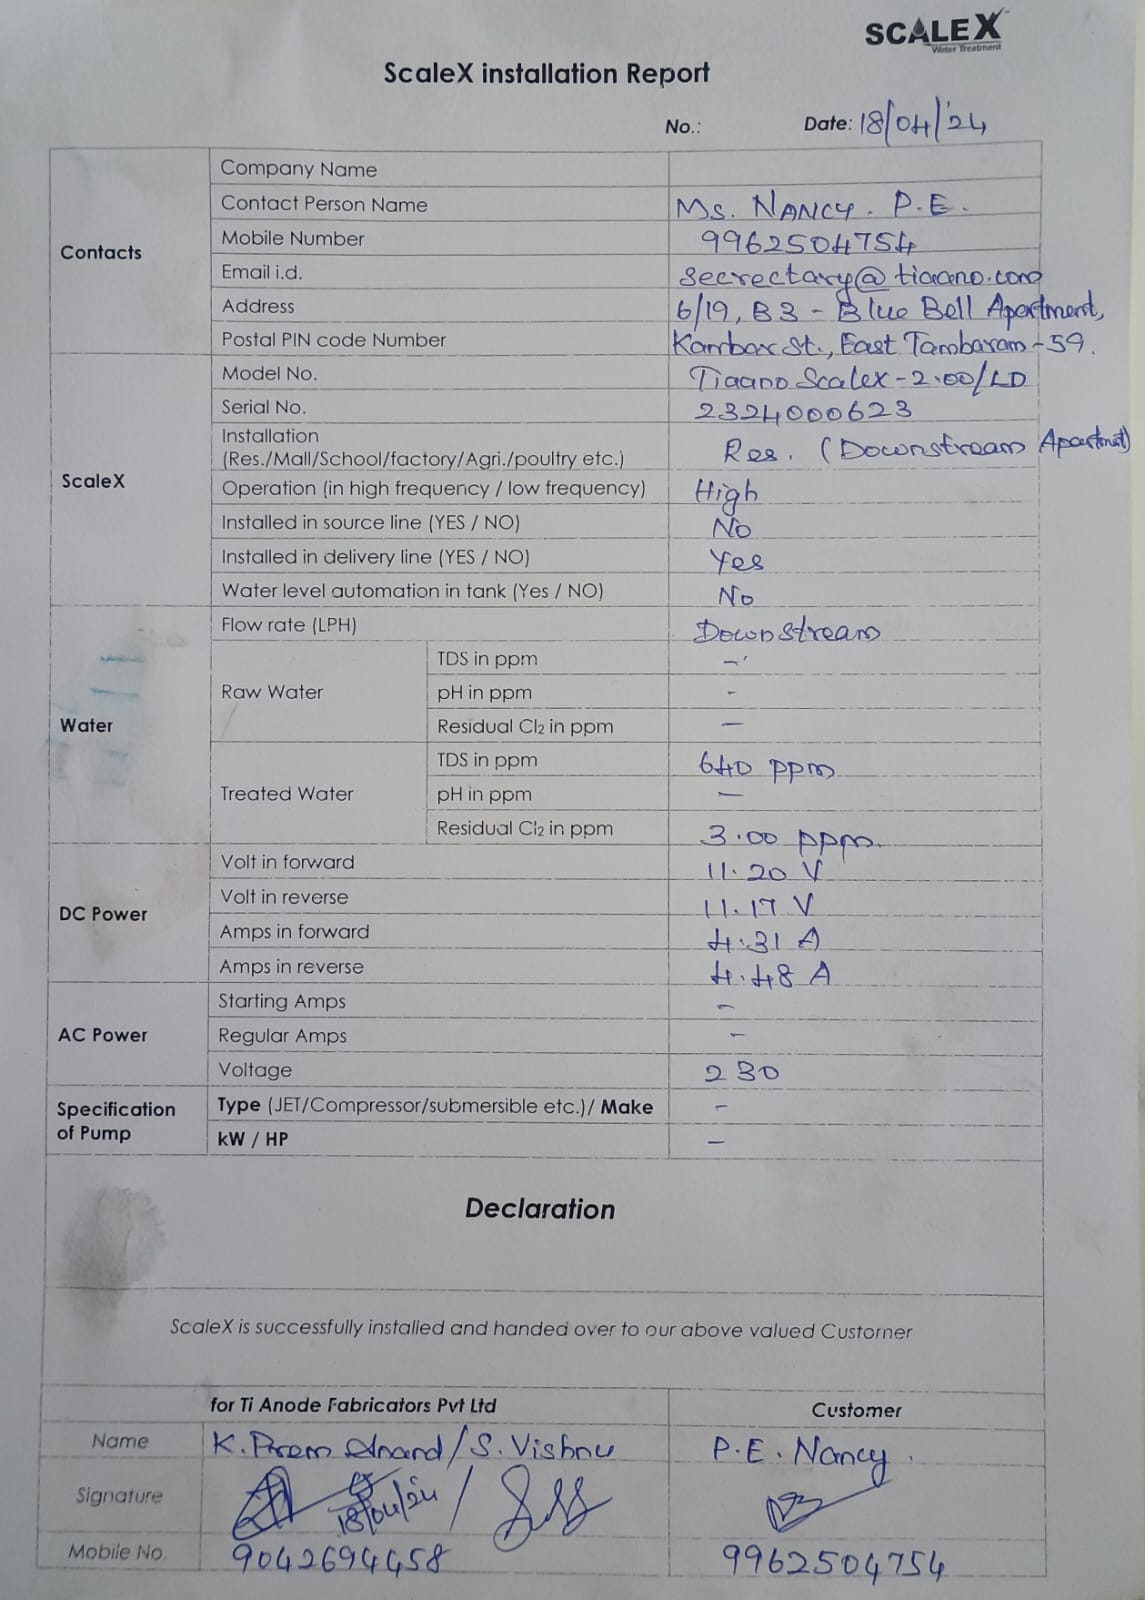 SCALEX
Water Treatment
ScaleX installation Report
No.: Date: 18/04/'24
Contacts
Company Name
Contact Person Name Ms. NANCY. P.E.
Mobile Number 9962504754
Email i.d. secrectary@tiaano.com
Address 6/19, B3 - Blue Bell Apartment,
Postal PIN code Number Kambar St., East Tambaram - 59.
ScaleX
Model No. Tiaano Scalex - 2.00/LD
Serial No. 2324000623
Installation
(Res./Mall/School/factory/Agri./poultry etc.) Res. (Downstream Apartmet)
Operation (in high frequency / low frequency) High
Installed in source line (YES / NO) No
Installed in delivery line (YES / NO) Yes
Water level automation in tank (Yes / NO) No
Water
Flow rate (LPH) Downstream
Raw Water
TDS in ppm -
pH in ppm -
Residual Cl2 in ppm -
Treated Water
TDS in ppm 640 ppm
pH in ppm -
Residual Cl2 in ppm 3.00 ppm.
DC Power
Volt in forward 11.20 V
Volt in reverse 11.17 V
Amps in forward 4.31 A
Amps in reverse 4.48 A
AC Power
Starting Amps -
Regular Amps -
Voltage 230
Specification
of Pump
Type (JET/Compressor/submersible etc.)/ Make -
kW / HP -
Declaration
ScaleX is successfully installed and handed over to our above valued Customer
for Ti Anode Fabricators Pvt Ltd Customer
Name K. Prem Anand / S. Vishnu P.E. Nancy.
Signature 18/04/24 /
Mobile No. 9042694458 9962504754